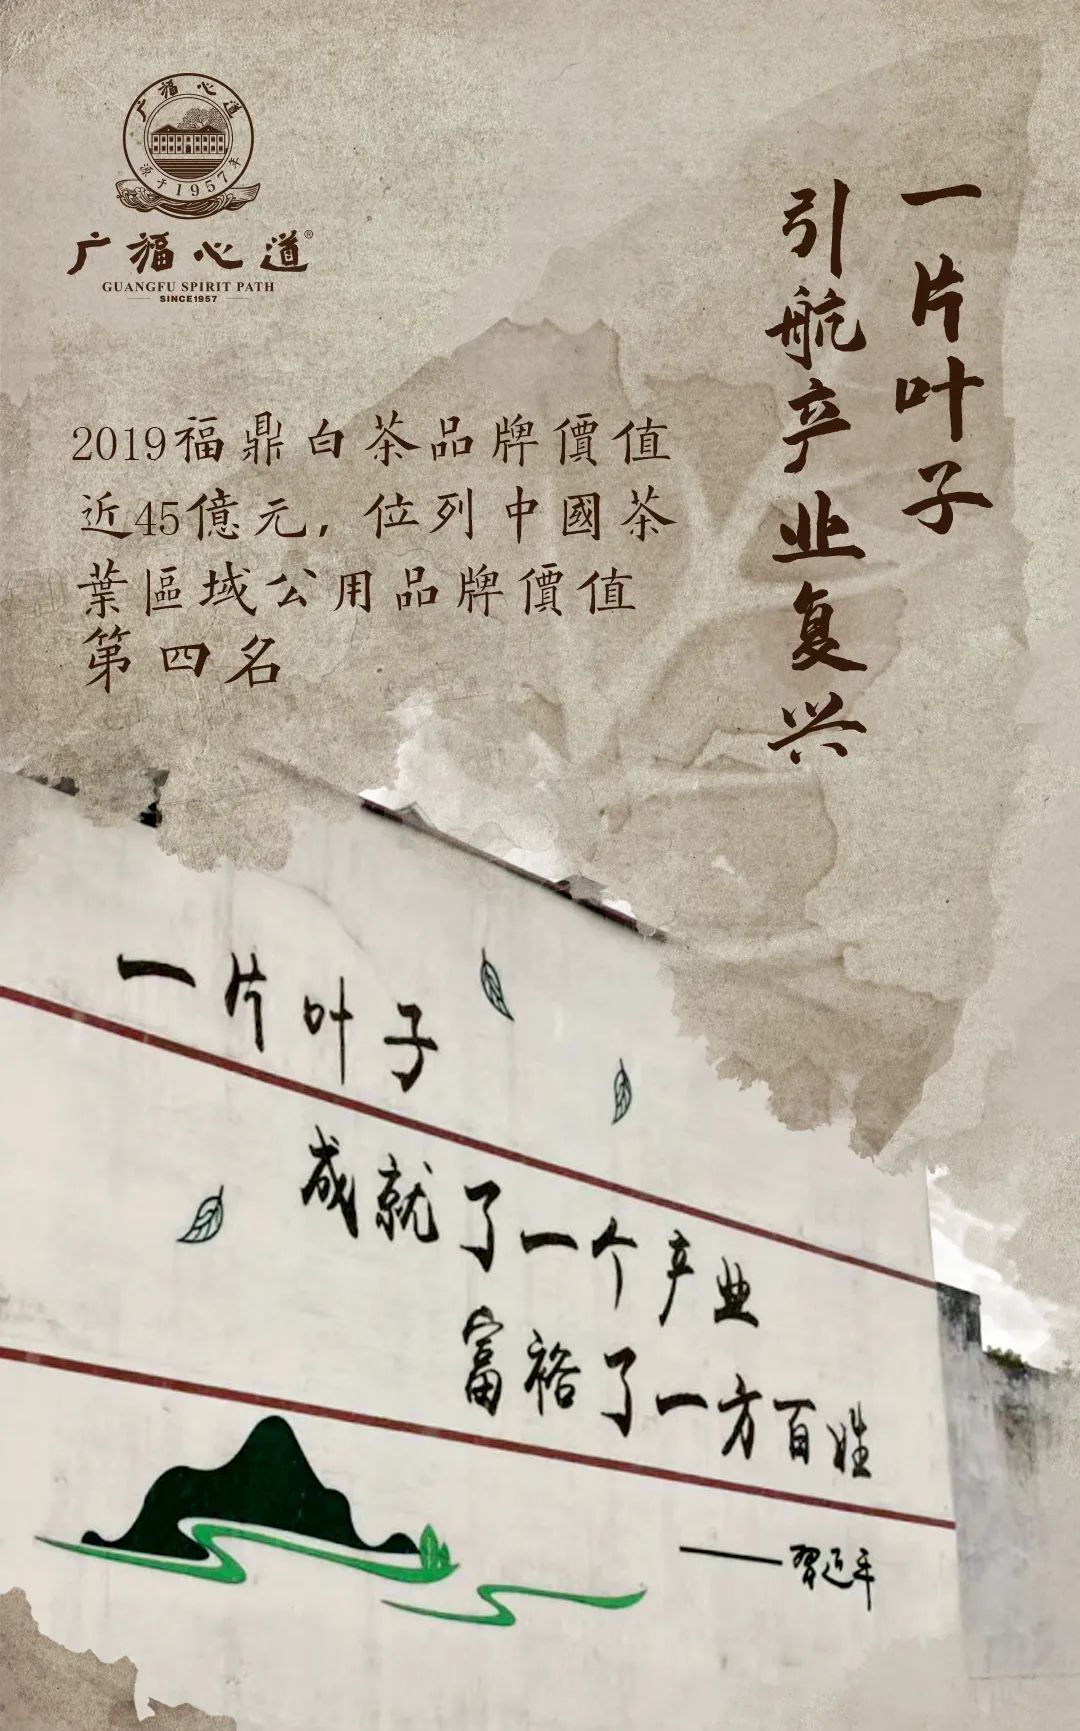 广福心道
源于1957年
广福心道®
GUANGFU SPIRIT PATH
SINCE1957
一片叶子
引航产业复兴
2019福鼎白茶品牌價值
近45億元，位列中國茶
葉區域公用品牌價值
第四名
一片叶子
成就了一个产业
富裕了一方百姓
——习近平